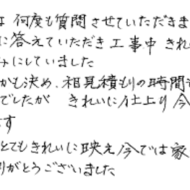 は 何度も質問させていただきま
に答えていただき工事中 きれ
みにしていました
かも決め、相見積もりの時間も
でしたが きれいに仕上り今
です
とてもきれいに映え今では家
りがとうございました